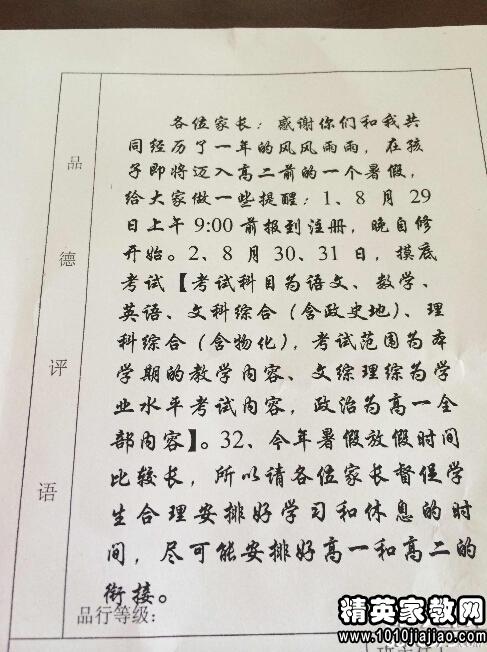 品
德
评
语
各位家长：感谢你们和我共
同经历了一年的风风雨雨，在孩
子即将迈入高二前的一个暑假，
给大家做一些提醒：1、8 月 29
日上午 9:00 前报到注册，晚自修
开始。2、8 月 30、31 日，摸底
考试【考试科目为语文、数学、
英语、文科综合（含政史地）、理
科综合（含物化），考试范围为本
学期的教学内容、文综理综为学
业水平考试内容，政治为高一全
部内容】。32、今年暑假放假时间
比较长，所以请各位家长督促学
生合理安排好学习和休息的时
间，尽可能安排好高一和高二的
衔接。
品行等级：
精英家教网
www.1010jiajiao.com